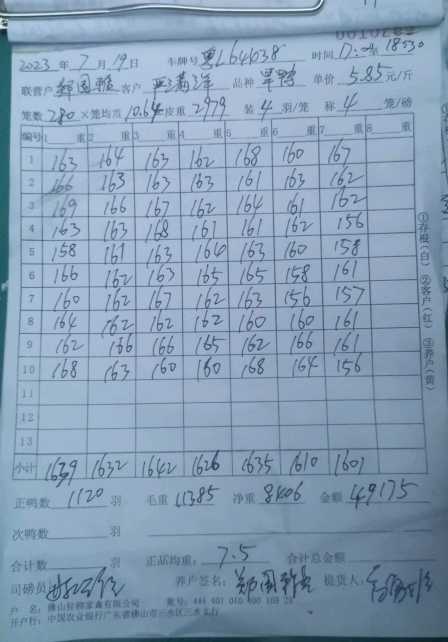 0010782
2023 年 7 月 19 日 车牌号 粤L64638 时间 18:30
联营户 客户 品种 单价 5.85 元/斤
笼数 280 ×笼均重 10.64 皮重 2979 装 4 羽/笼 称 4 笼/磅
编号 1 重 2 重 3 重 4 重 5 重 6 重 7 重 8 重
1 163 164 163 162 168 160 167
2 166 163 163 163 161 163 162
3 169 166 167 162 164 161 162
4 163 163 168 161 161 162 156
5 158 161 163 164 163 160 158
6 166 162 163 165 165 158 161
7 160 162 167 162 163 156 157
8 164 162 162 162 160 160 161
9 162 166 166 165 162 166 161
10 168 163 160 160 168 164 156
11
12
13
小计 1639 1632 1642 1626 1635 1610 1601
正鸭数 1120 羽 毛重 11385 净重 8406 金额 49175
次鸭数 羽
合计数 羽 正品均重: 7.5 合计总金额
司磅员 养户签名: 提货人:
户 名: 佛山 家禽有限公司 账号:
开户行: 中国农业银行广东省佛山市三水区三水支行
①存根(白) ②客户(红) ③养户(黄)